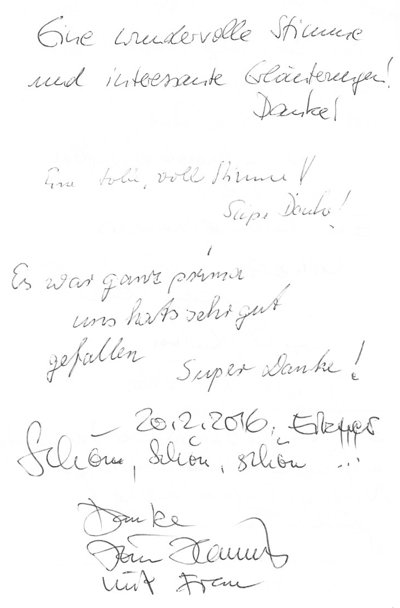 Eine wundervolle Stimme
und interessante Erläuterungen!
Danke!
Eine tolle, volle Stimme!
Super Danke!
Es war ganz prima
uns hats sehr gut
gefallen
Super Danke!
20.2.2016,
Schön, schön, schön ...
Danke
mit Frau